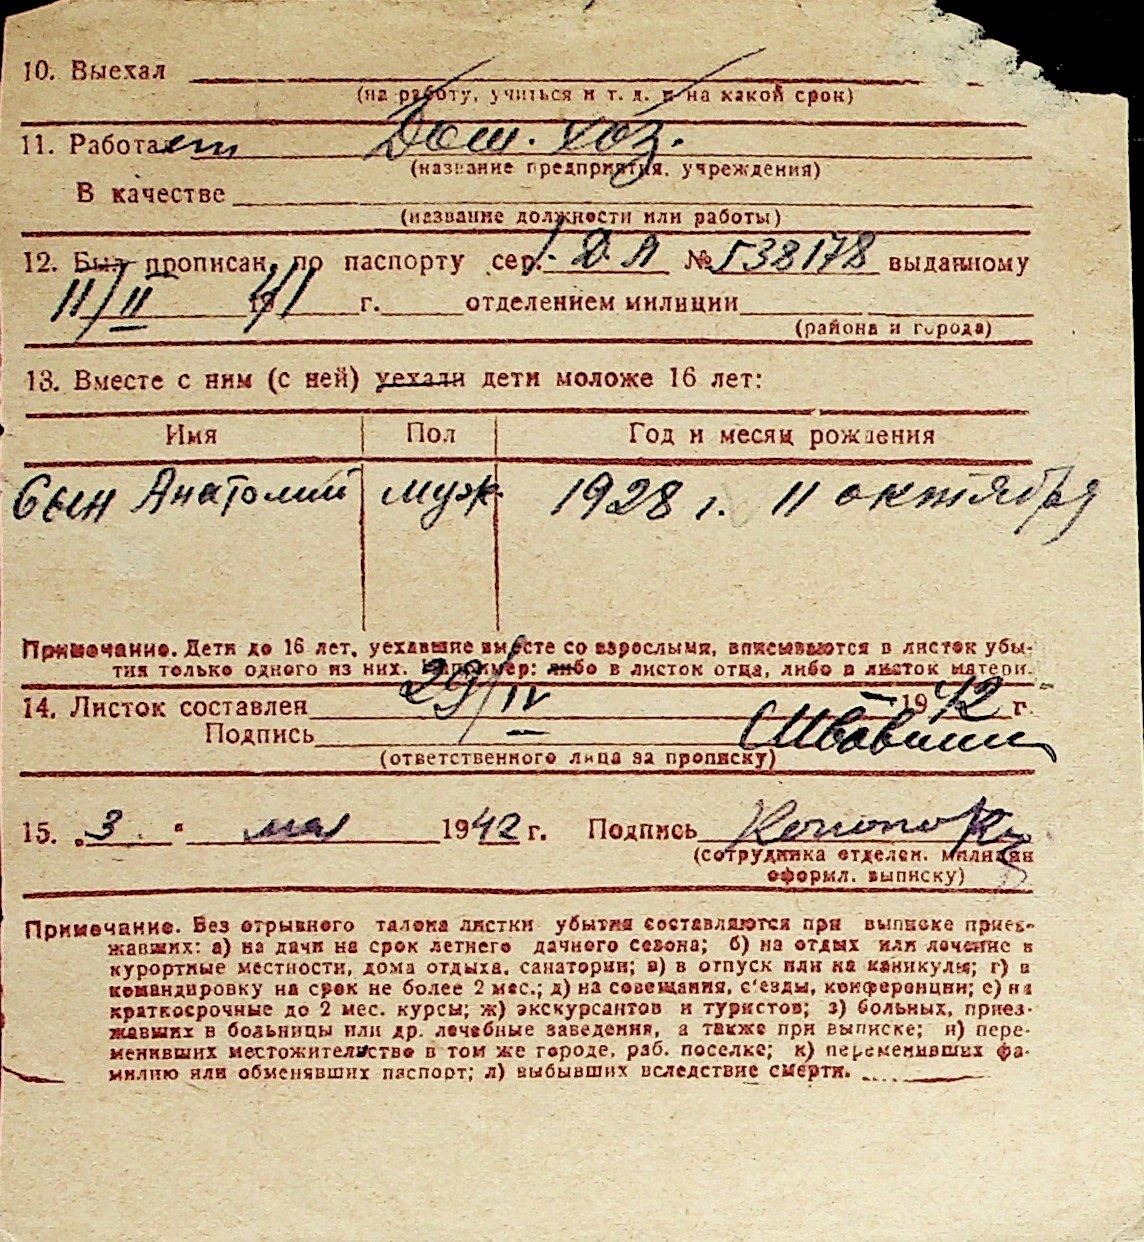 10. Выехал
(на работу, учиться и т. д. и на какой срок)
11. Работает Дом. хоз.
(название предприятия, учреждения)
В качестве
(название должности или работы)
12. Был прописан по паспорту сер. Д.А № 538178 выданному
11/II 1941 г. отделением милиции
(района и города)
13. Вместе с ним (с ней) уехали дети моложе 16 лет:
Имя Пол Год и месяц рождения
Сын Анатолий муж. 1928 г. 11 октября
Примечание. Дети до 16 лет, уехавшие вместе со взрослыми, вписываются в листок убы-
тия только одного из них. Например: либо в листок отца, либо в листок матери.
14. Листок составлен 29/IV 1942 г.
Подпись
(ответственного лица за прописку)
15. „3" мая 1942 г. Подпись
(сотрудника отделен. милиции
оформл. выписку)
Примечание. Без отрывного талона листки убытия составляются при выписке приез-
жавших: а) на дачи на срок летнего дачного сезона; б) на отдых или лечение в
курортные местности, дома отдыха, санатории; в) в отпуск или на каникулы; г) в
командировку на срок не более 2 мес.; д) на совещания, с'езды, конференции; е) на
краткосрочные до 2 мес. курсы; ж) экскурсантов и туристов; з) больных, приез-
жавших в больницы или др. лечебные заведения, а также при выписке; и) пере-
менивших местожительство в том же городе, раб. поселке; к) переменивших фа-
милию или обменявших паспорт; л) выбывших вследствие смерти.